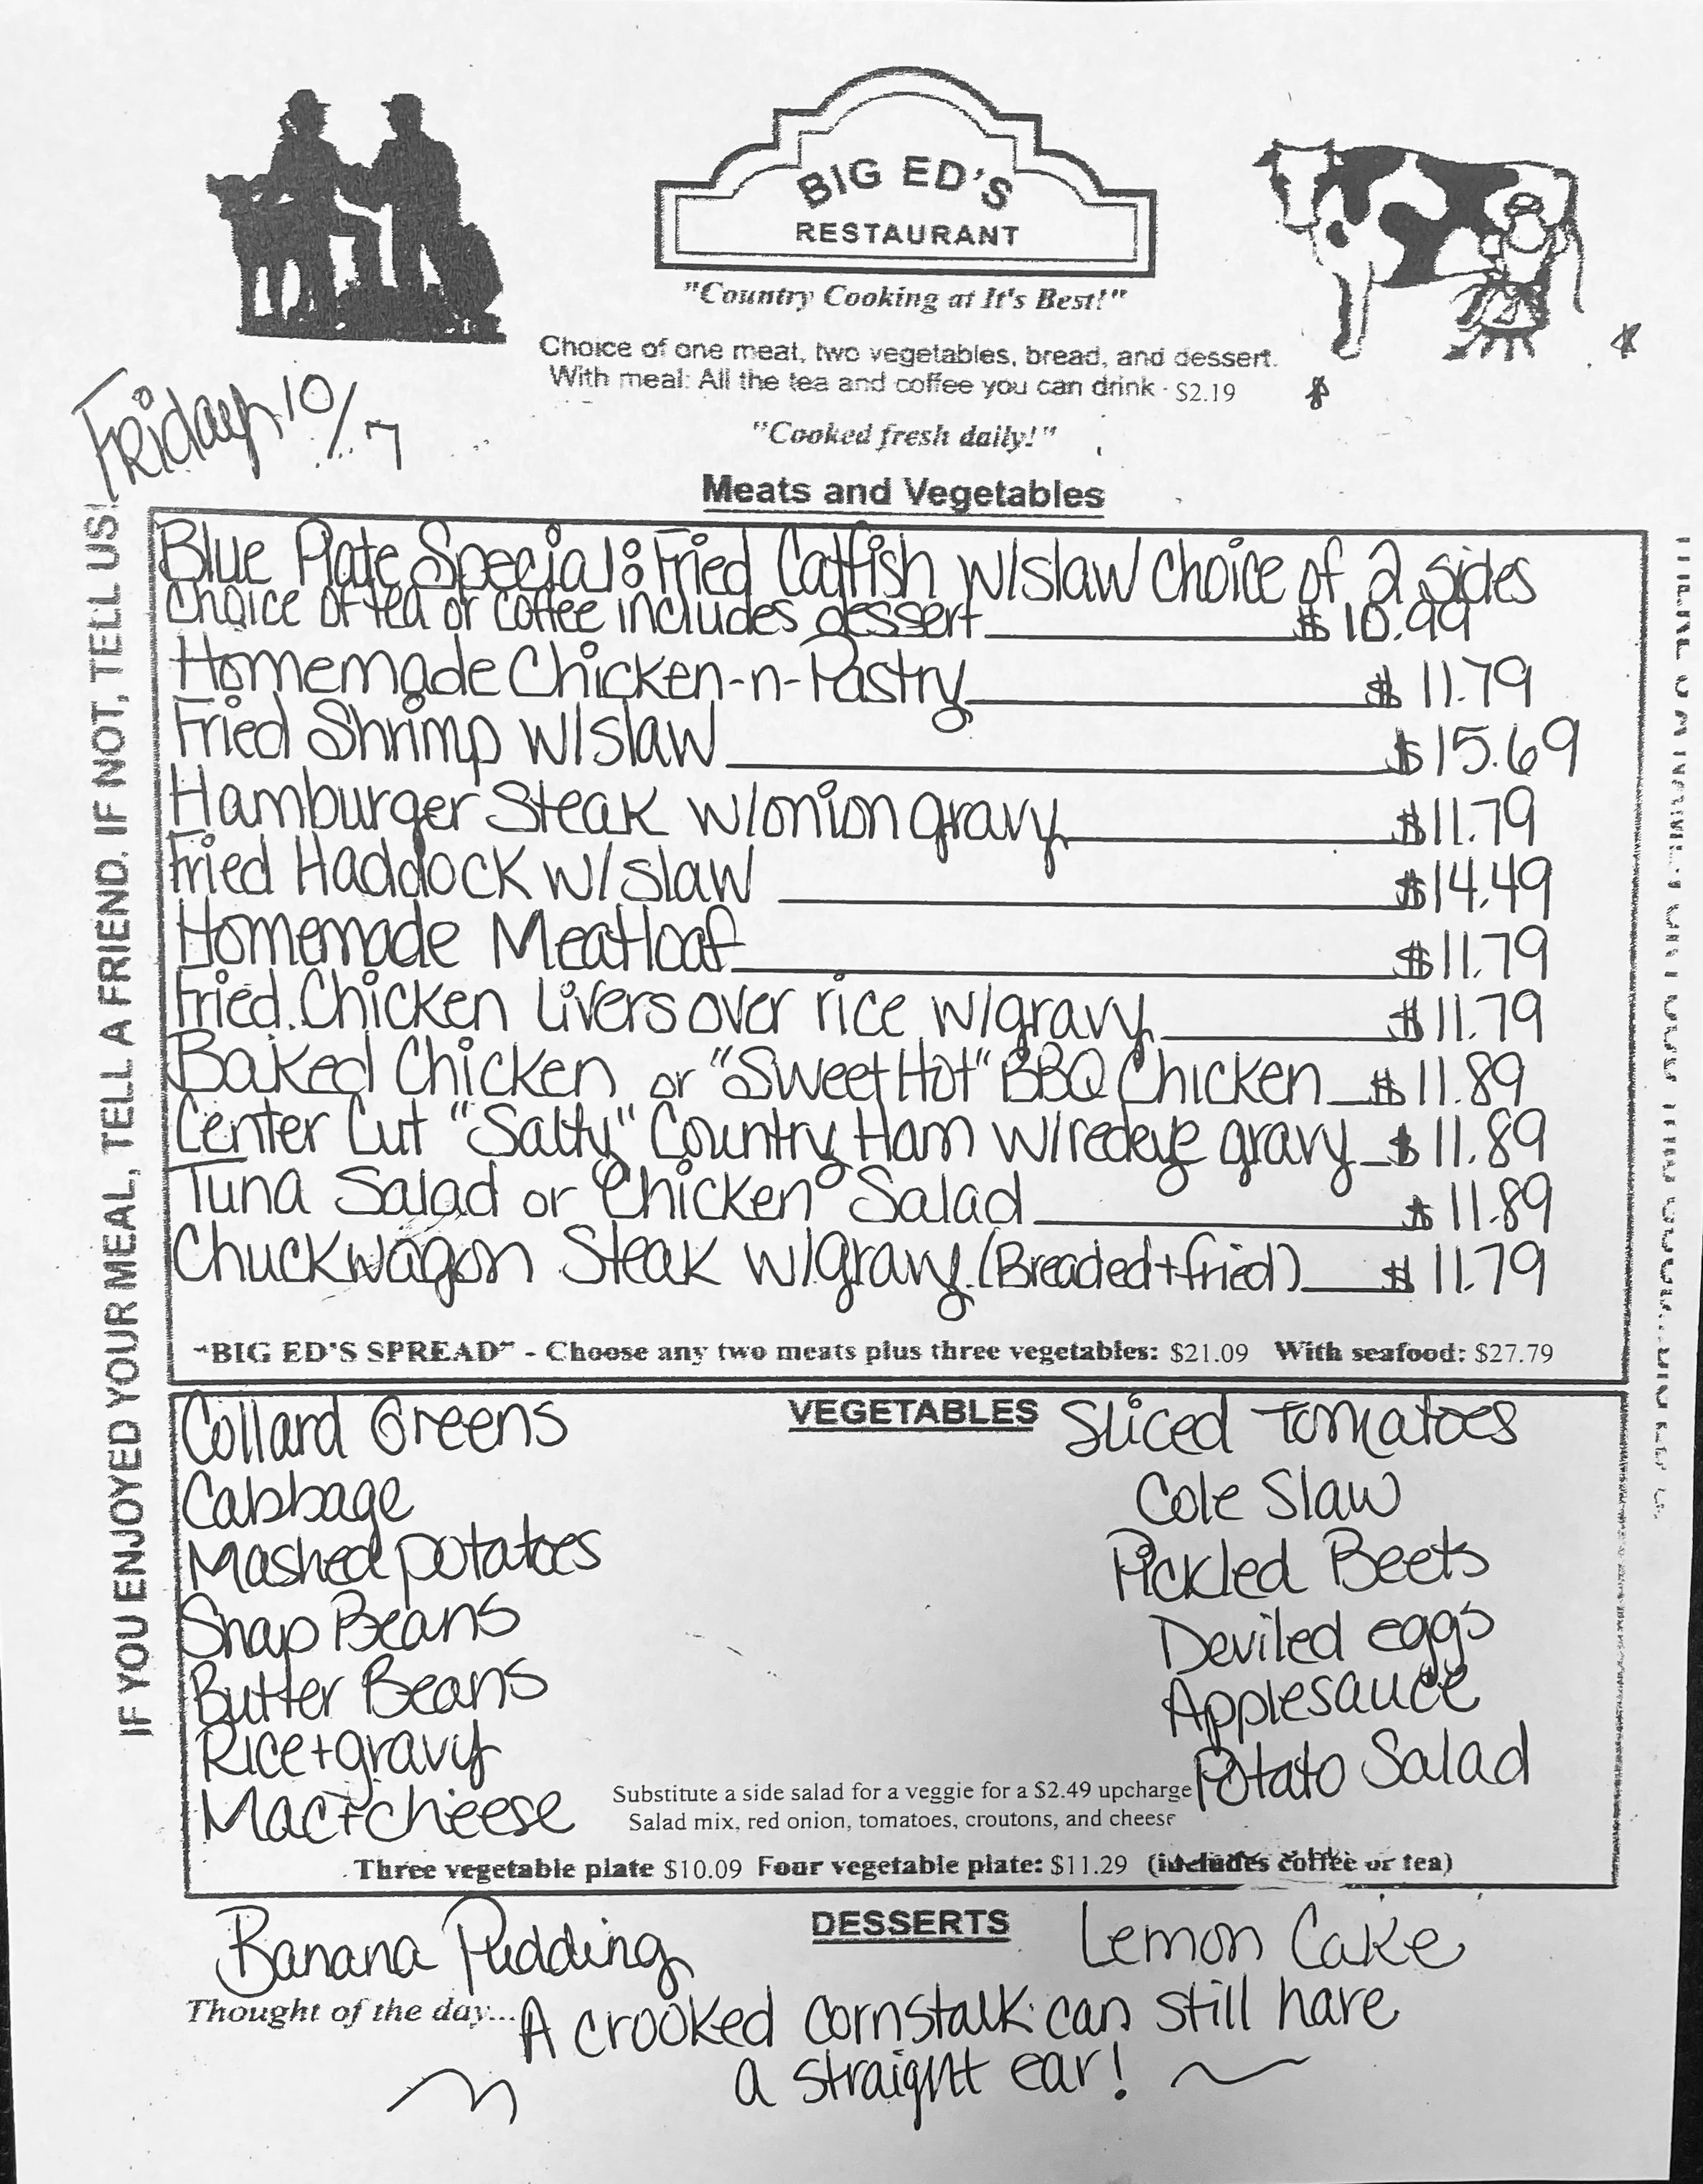 BIG ED'S
RESTAURANT
"Country Cooking at It's Best!"
Choice of one meat, two vegetables, bread, and dessert.
With meal: All the tea and coffee you can drink - $2.19
"Cooked fresh daily!"
Friday 10/7
Meats and Vegetables
Blue Plate Special: Fried Catfish w/slaw choice of 2 sides
choice of tea or coffee includes dessert $10.99
Homemade Chicken-n-Pastry $11.79
Fried Shrimp w/slaw $15.69
Hamburger Steak w/onion gravy $11.79
Fried Haddock w/slaw $14.49
Homemade Meatloaf $11.79
Fried Chicken Livers over rice w/gravy $11.79
Baked Chicken or "Sweet Hot" BBQ Chicken $11.89
Center Cut "Salty" Country Ham w/redeye gravy $11.89
Tuna Salad or Chicken Salad $11.89
Chuckwagon Steak w/gravy (Breaded+fried) $11.79
"BIG ED'S SPREAD" - Choose any two meats plus three vegetables: $21.09 With seafood: $27.79
VEGETABLES
Collard Greens
Cabbage
Mashed potatoes
Snap Beans
Butter Beans
Rice+gravy
Mac+cheese
Sliced Tomatoes
Cole Slaw
Pickled Beets
Deviled eggs
Applesauce
Potato Salad
Substitute a side salad for a veggie for a $2.49 upcharge
Salad mix, red onion, tomatoes, croutons, and cheese
Three vegetable plate $10.09 Four vegetable plate: $11.29 (includes coffee or tea)
DESSERTS
Banana Pudding
Lemon Cake
Thought of the day... A crooked cornstalk can still have
a straight ear!
IF YOU ENJOYED YOUR MEAL, TELL A FRIEND. IF NOT, TELL US!